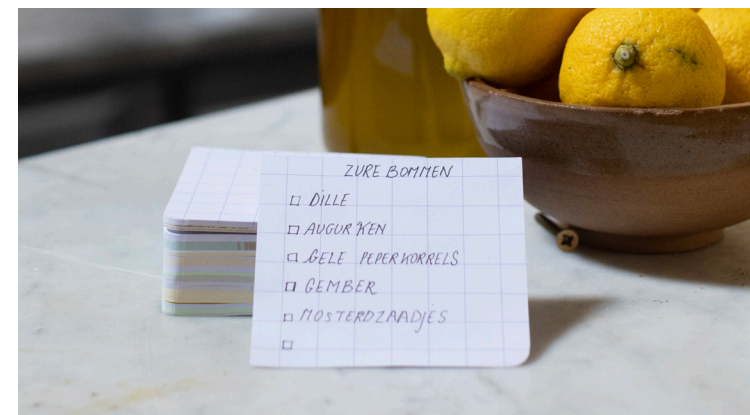 ZURE BOMMEN
□ DILLE
□ AUGURKEN
□ GELE PEPERKORRELS
□ GEMBER
□ MOSTERDZAADJES
□